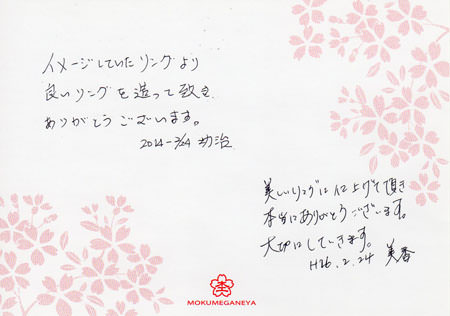 イメージしていたリングより
良いリングを造って頂き
ありがとうございます。
2014-2/24 功治
美しいリングに仕上げて頂き
本当にありがとうございます。
大切にしていきます。
H26.2.24 美香
MOKUMEGANEYA